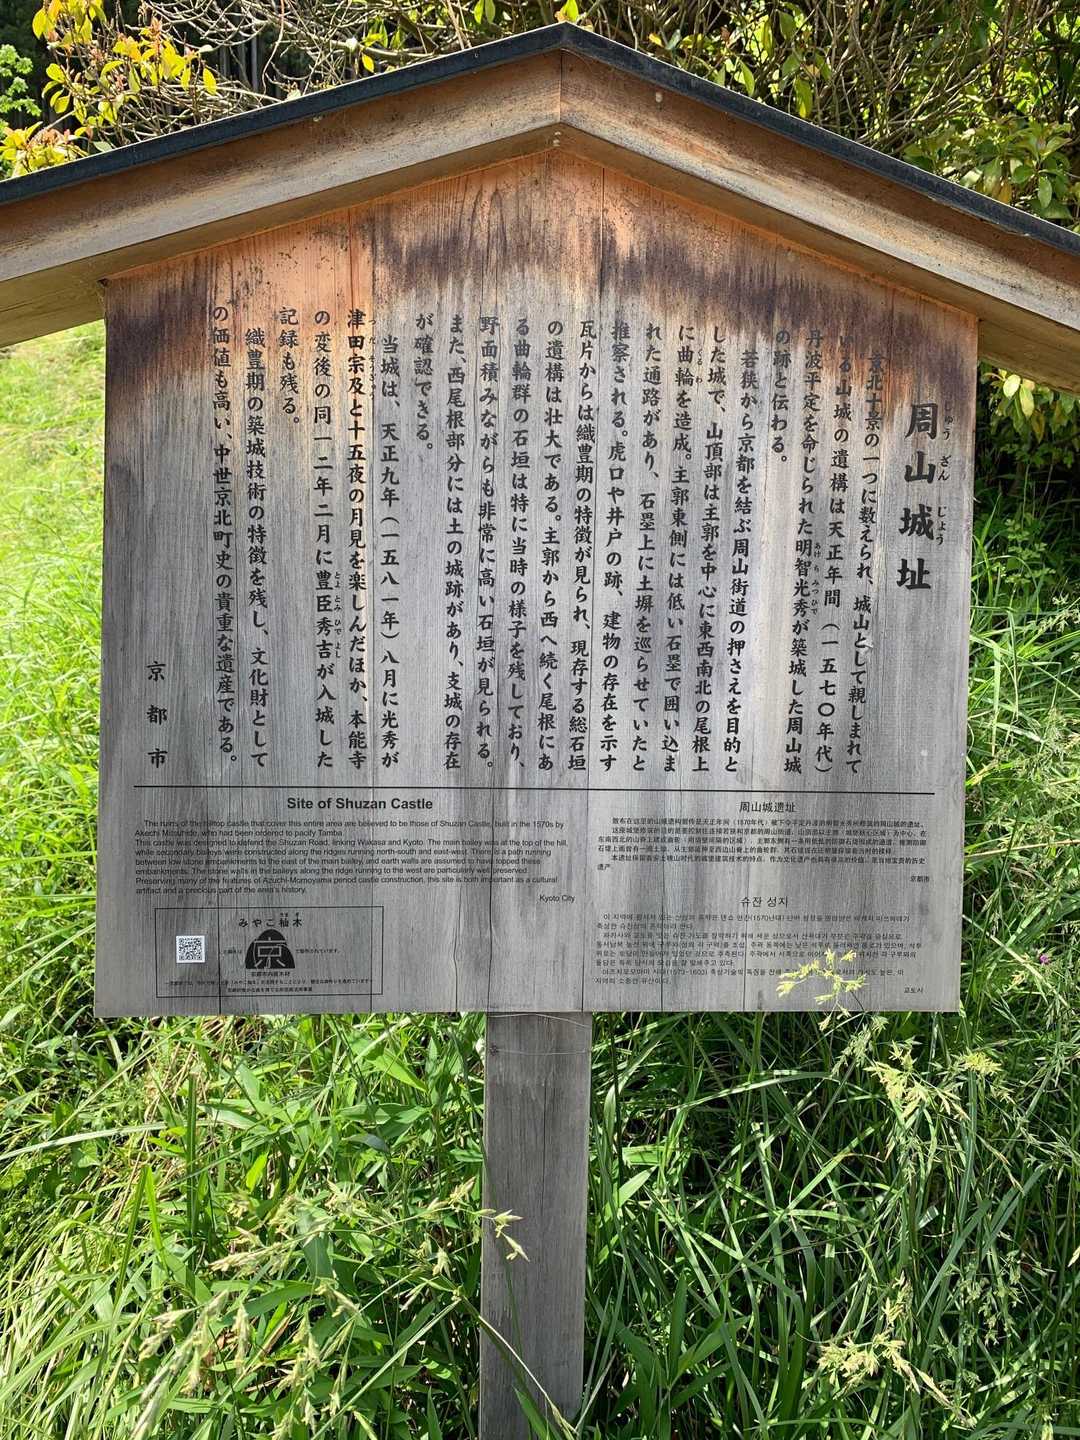 周山城址
しゅうざんじょう
京北十景の一つに数えられ、城山として親しまれて
いる山城の遺構は天正年間（一五七〇年代）
丹波平定を命じられた明智光秀が築城した周山城
あけちみつひで
の跡と伝わる。
若狭から京都を結ぶ周山街道の押さえを目的と
した城で、山頂部は主郭を中心に東西南北の尾根上
に曲輪を造成。主郭東側には低い石塁で囲い込ま
くるわ
れた通路があり、石塁上に土塀を巡らせていたと
推察される。虎口や井戸の跡、建物の存在を示す
瓦片からは織豊期の特徴が見られ、現存する総石垣
の遺構は壮大である。主郭から西へ続く尾根にあ
る曲輪群の石垣は特に当時の様子を残しており、
野面積みながらも非常に高い石垣が見られる。
また、西尾根部分には土の城跡があり、支城の存在
が確認できる。
当城は、天正九年（一五八一年）八月に光秀が
津田宗及と十五夜の月見を楽しんだほか、本能寺
の変後の同一二年二月に豊臣秀吉が入城した
とよとみひでよし
記録も残る。
織豊期の築城技術の特徴を残し、文化財として
の価値も高い、中世京北町史の貴重な遺産である。
京都市
Site of Shuzan Castle
The ruins of the hilltop castle that cover this entire area are believed to be those of Shuzan Castle, built in the 1570s by
Akechi Mitsuhide, who had been ordered to pacify Tamba.
This castle was designed to defend the Shuzan Road, linking Wakasa and Kyoto. The main bailey was at the top of the hill,
while secondary baileys were constructed along the ridges running north-south and east-west. There is a path running
between low stone embankments to the east of the main bailey, and earth walls are assumed to have topped these
embankments. The stone walls in the baileys along the ridge running to the west are particularly well preserved.
Preserving many of the features of Azuchi-Momoyama period castle construction, this site is both important as a cultural
artifact and a precious part of the area's history.
Kyoto City
周山城遗址
京都市
슈잔 성지
교토시
みやこ杣木
京
京都市内産木材